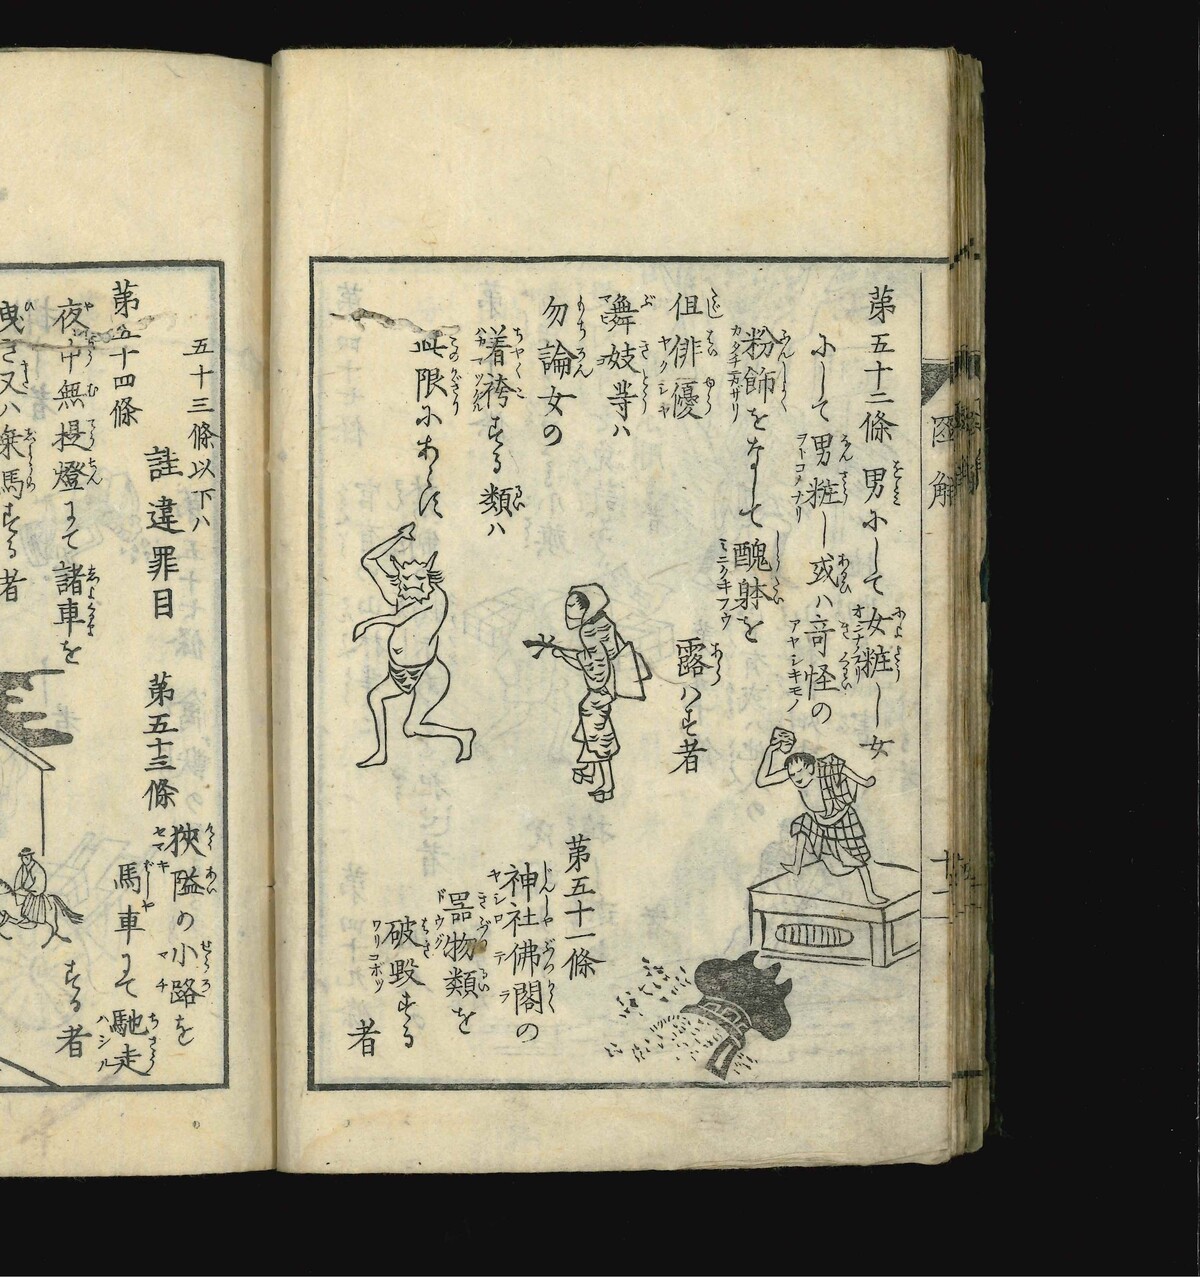 圖解
十二
第五十二條 男にして女粧し女
にして男粧し或ハ奇怪の
粉飾をなして醜躰を
露ハす者
但俳優
舞妓等ハ
勿論女の
着袴する類ハ
此限にあらす
第五十一條
神社佛閣の
器物類を
破毀する
者
五十三條以下ハ
詿違罪目
第五十三條
狹隘の小路を
馬車にて馳走
する者
第五十四條
夜中無提燈にて諸車を
曳き又ハ乗馬する者